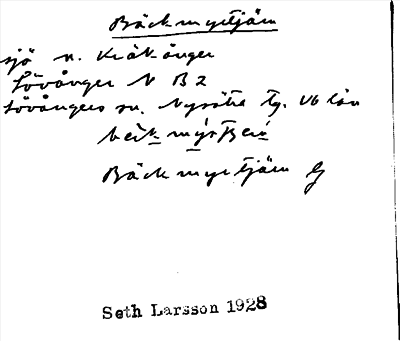 Bäckmyrtjärn
sjö n. Kräkånger
Lövånger N B 2
Lövångers sn. Nysätra tg. Vb län
Bäckmyrtjärn G
Seth Larsson 1928